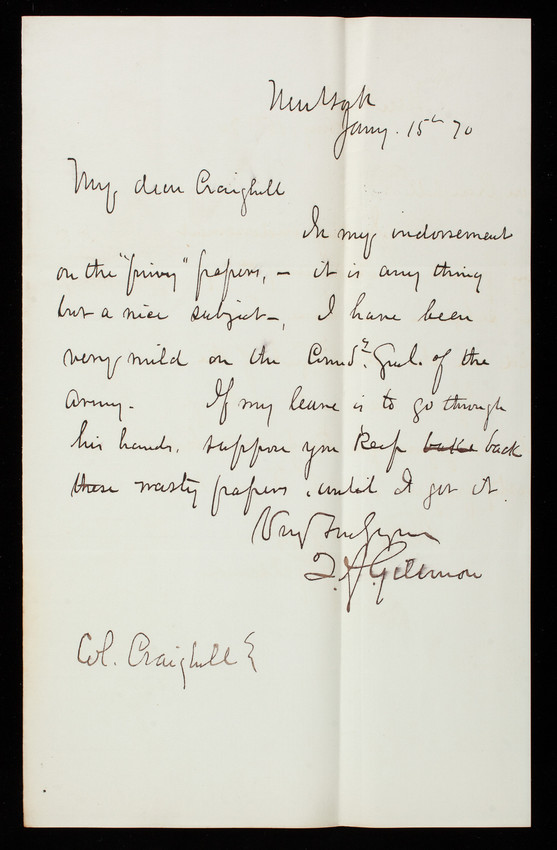 New York
Jany. 15th 70
My dear Craighill
In my indorsement
on the "privy" papers, - it is any thing
but a nice subject -, I have been
very mild on the Comdg. Genl. of the
Army. If my leave is to go through
his hands, suppose you keep back
these nasty papers, until I get it.
Very Truly Yours
Q. A. Gillmore
Col. Craighill